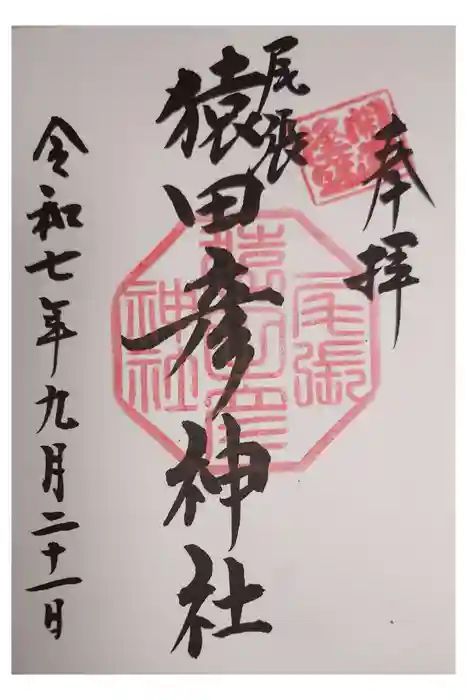 奉拝
尾張
猿田彦神社
令和七年九月二十一日
尾張
猿田彦
神社